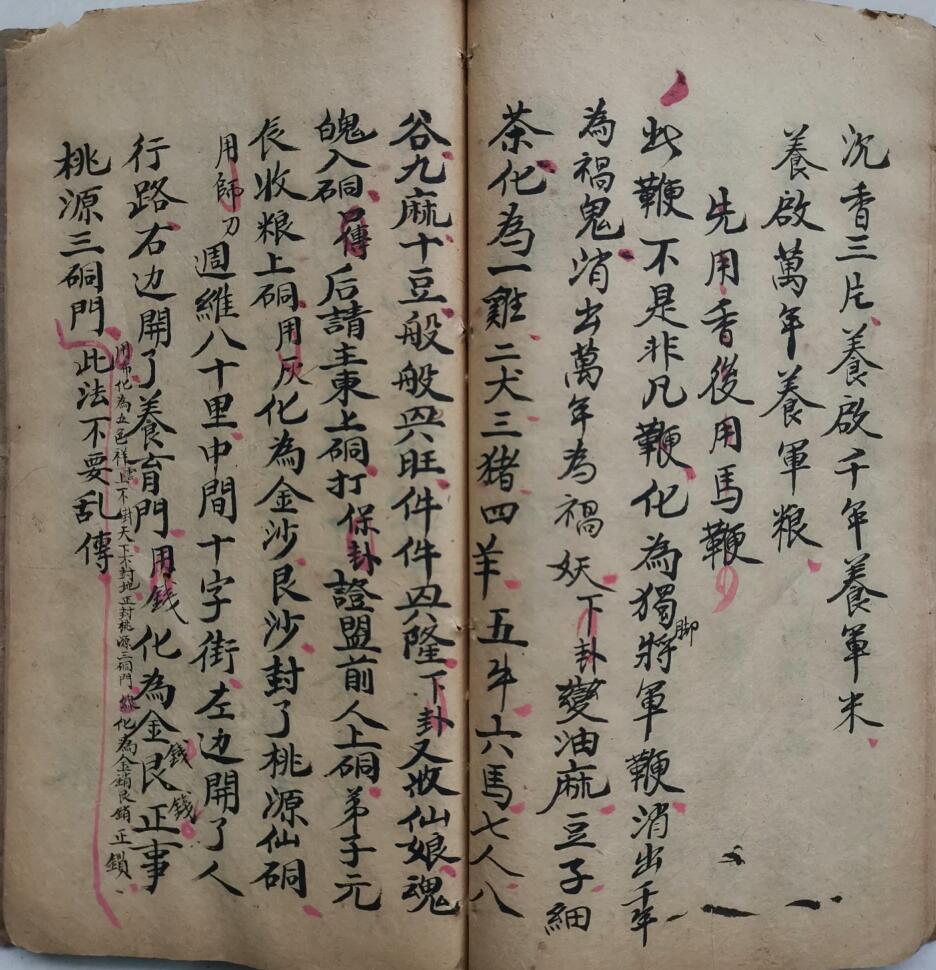 沉香三片養啟千年養軍米
養啟萬年養軍粮
先用香後用馬鞭
此鞭不是非凡鞭化為獨脚將軍鞭消出千年
為禍鬼消出萬年為禍妖下卦變油麻豆子細
茶化為一雞二犬三猪四羊五牛六馬七人八
谷九麻十豆般般興旺件件興隆下卦又收仙娘魂
魄入硐后請主東上硐打保卦證盟前人上硐弟子元
長收粮上硐用灰化為金沙艮沙封了桃源仙硐
用師刀週維八十里中間十字街左边開了人
行路右边開了養育門用錢化為金錢艮錢正事
用布化為五色祥不掛天下不封地正封桃源三硐門化為金銷艮銷正鎖
桃源三硐門此法不要乱傳